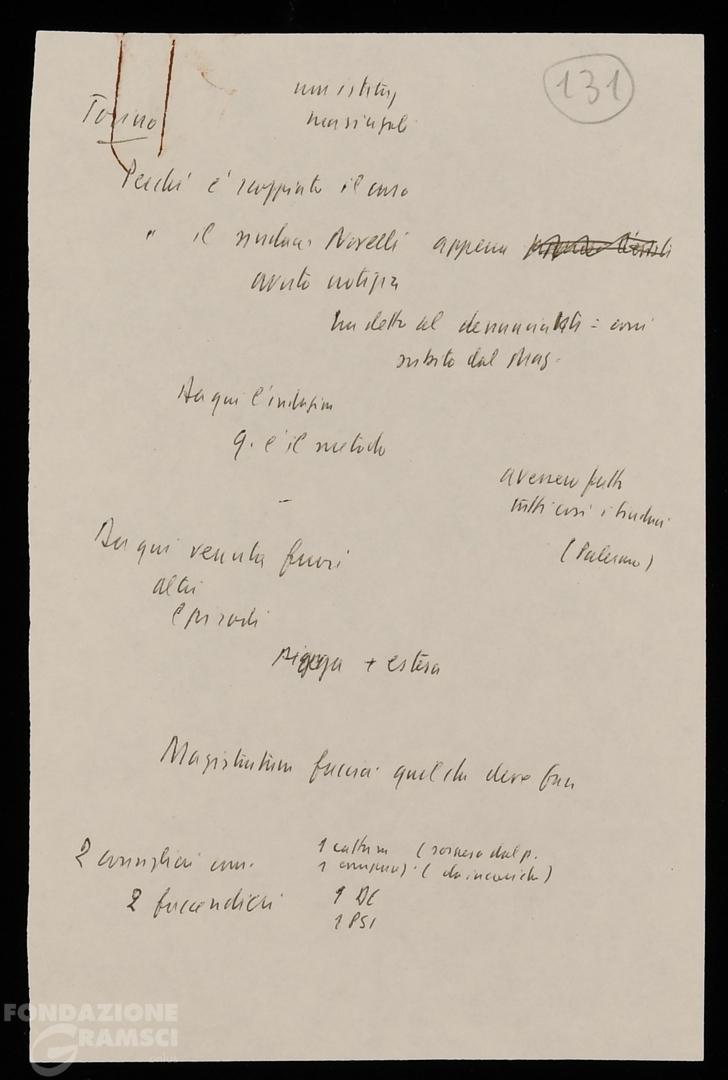 131
Torino
Perché è scoppiato il caso
" il sindaco Novelli appena
avuto notizia
ha detto al denunciante = corri
subito dal Mag.
Da qui l'indagine
q. è il metodo
avessero fatto
tutti così i sindaci
(Palermo)
–
Da qui venuta fuori
altri
episodi
+ estesa
Magistratura faccia quel che deve fare
2 consiglieri com.
1 cattura (sospeso dal p.
1 (da incarichi)
2 faccendieri
1 DC
1 PSI
FONDAZIONE
GRAMSCI
onlus